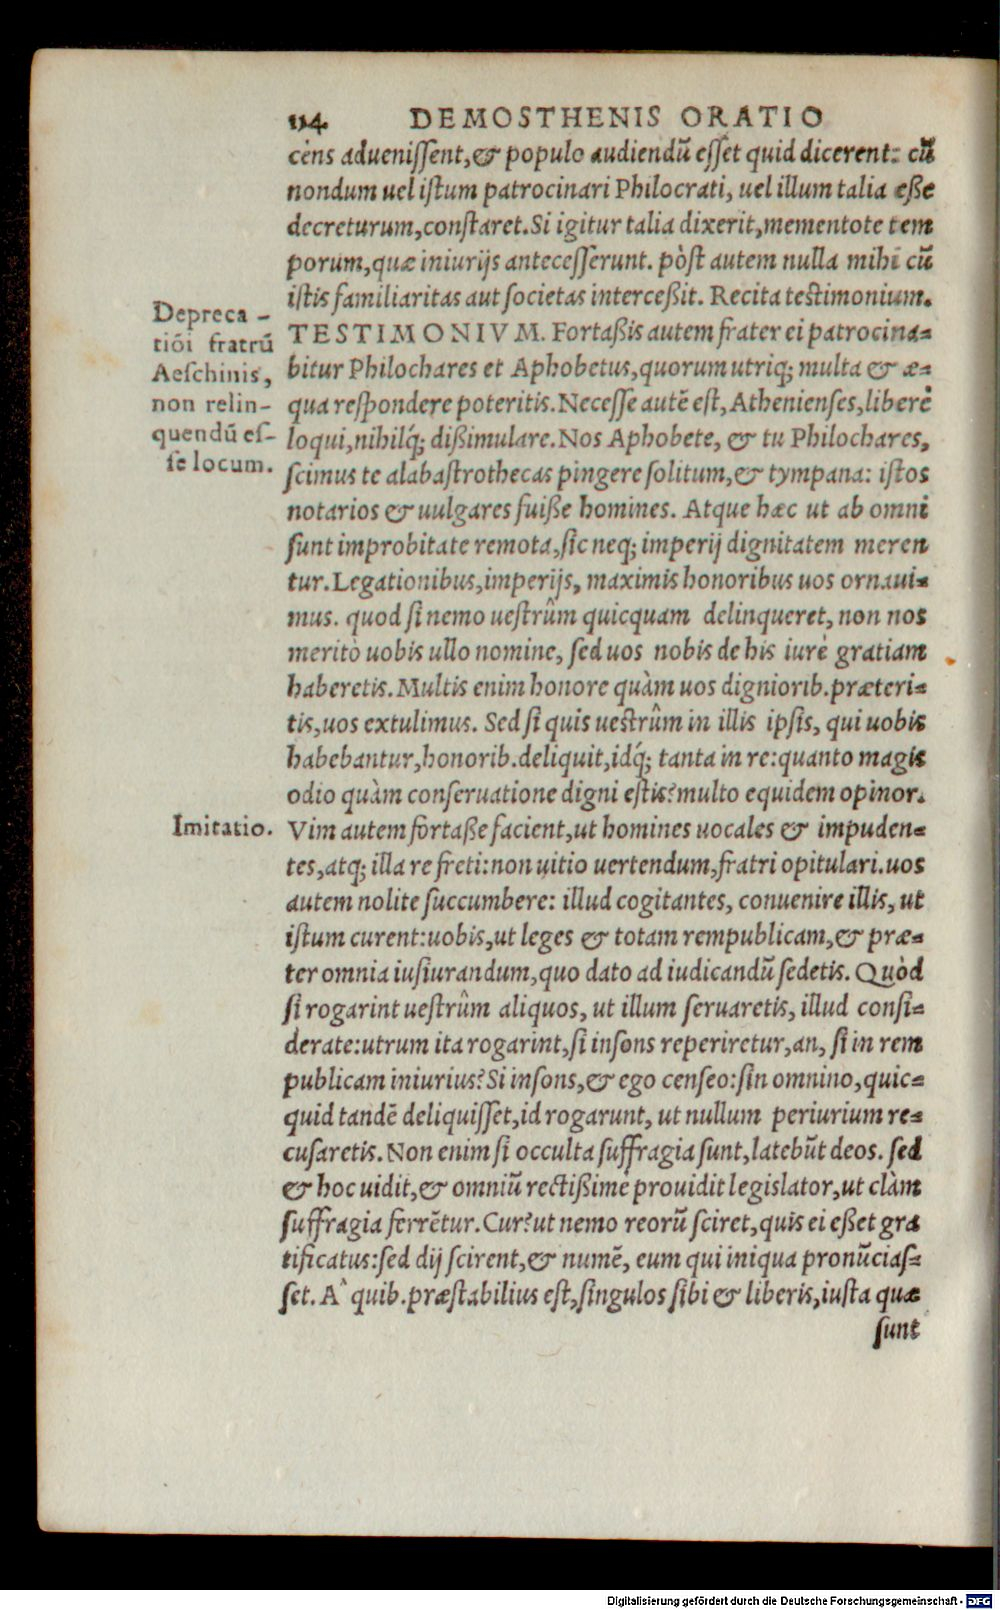 114 DEMOSTHENIS ORATIO
cēns aduenissent, & populo audiendū esset quid dicerent: cū
nondum uel istum patrocinari Philocrati, uel illum talia eße
decreturum, constaret. Si igitur talia dixerit, mementote tem
porum, quæ iniurijs antecesserunt. pòst autem nulla mihi cū
istis familiaritas aut societas interceßit. Recita testimonium.
TESTIMONIVM. Fortaßis autem frater ei patrocina-
bitur Philochares et Aphobetus, quorum utriq; multa & æ-
qua respondere poteritis. Necesse autē est, Athenienses, liberè
loqui, nihilq́; dißimulare. Nos Aphobete, & tu Philochares,
scimus te alabastrothecas pingere solitum, & tympana: istos
notarios & uulgares fuiße homines. Atque hæc ut ab omni
sunt improbitate remota, sic neq; imperij dignitatem meren
tur. Legationibus, imperijs, maximis honoribus uos ornaui-
mus. quod si nemo uestrûm quicquam delinqueret, non nos
meritò uobis ullo nomine, sed uos nobis de his iurè gratiam
haberetis. Multis enim honore quàm uos digniorib. præteri-
tis, uos extulimus. Sed si quis uestrûm in illis ipsis, qui uobis
habebantur, honorib. deliquit, idq́; tanta in re: quanto magis
odio quàm conseruatione digni estis? multo equidem opinor.
Vim autem fortaße facient, ut homines uocales & impuden-
tes, atq; illa re freti: non uitio uertendum, fratri opitulari. uos
autem nolite succumbere: illud cogitantes, conuenire illis, ut
istum curent: uobis, ut leges & totam rempublicam, & præ-
ter omnia iusiurandum, quo dato ad iudicandū sedetis. Quòd
si rogarint uestrûm aliquos, ut illum seruaretis, illud consi-
derate: utrum ita rogarint, si insons reperiretur, an, si in rem
publicam iniurius? Si insons, & ego censeo: sin omnino, quic-
quid tandē deliquisset, id rogarunt, ut nullum periurium re-
cusaretis. Non enim si occulta suffragia sunt, latebūt deos. sed
& hoc uidit, & omniū rectißimè prouidit legislator, ut clàm
suffragia ferrētur. Cur? ut nemo reorū sciret, quis ei eßet gra
tificatus: sed dij scirent, & numē, eum qui iniqua pronūcias-
set. A' quib. præstabilius est, singulos sibi & liberis, iusta quæ
sunt
Depreca-
tiōi fratrū
Aeschinis,
non relin-
quendū es-
se locum.
Imitatio.
Digitalisierung gefördert durch die Deutsche Forschungsgemeinschaft - DFG